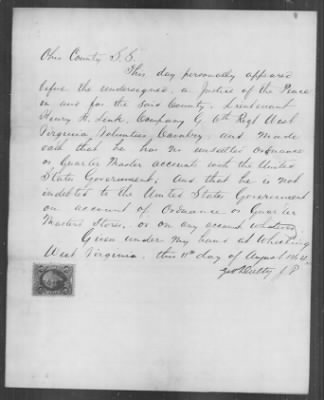 Ohio County S.S.
This day personally appeared
before the undersigned, a Justice of the Peace
in and for the said County, Lieutenant
Henry H. Link, Company G 6th Regt West
Virginia Volunteer Cavalry, and made
oath that he has no unsettled ordnance
or Quarter Master accounts with the United
States Government, And that he is not
indebted to the United States Government
on account of Ordnance or Quarter
Masters Stores, or on any account whatever,
Given under my hand at Wheeling
West Virginia, this 11th day of August
J P